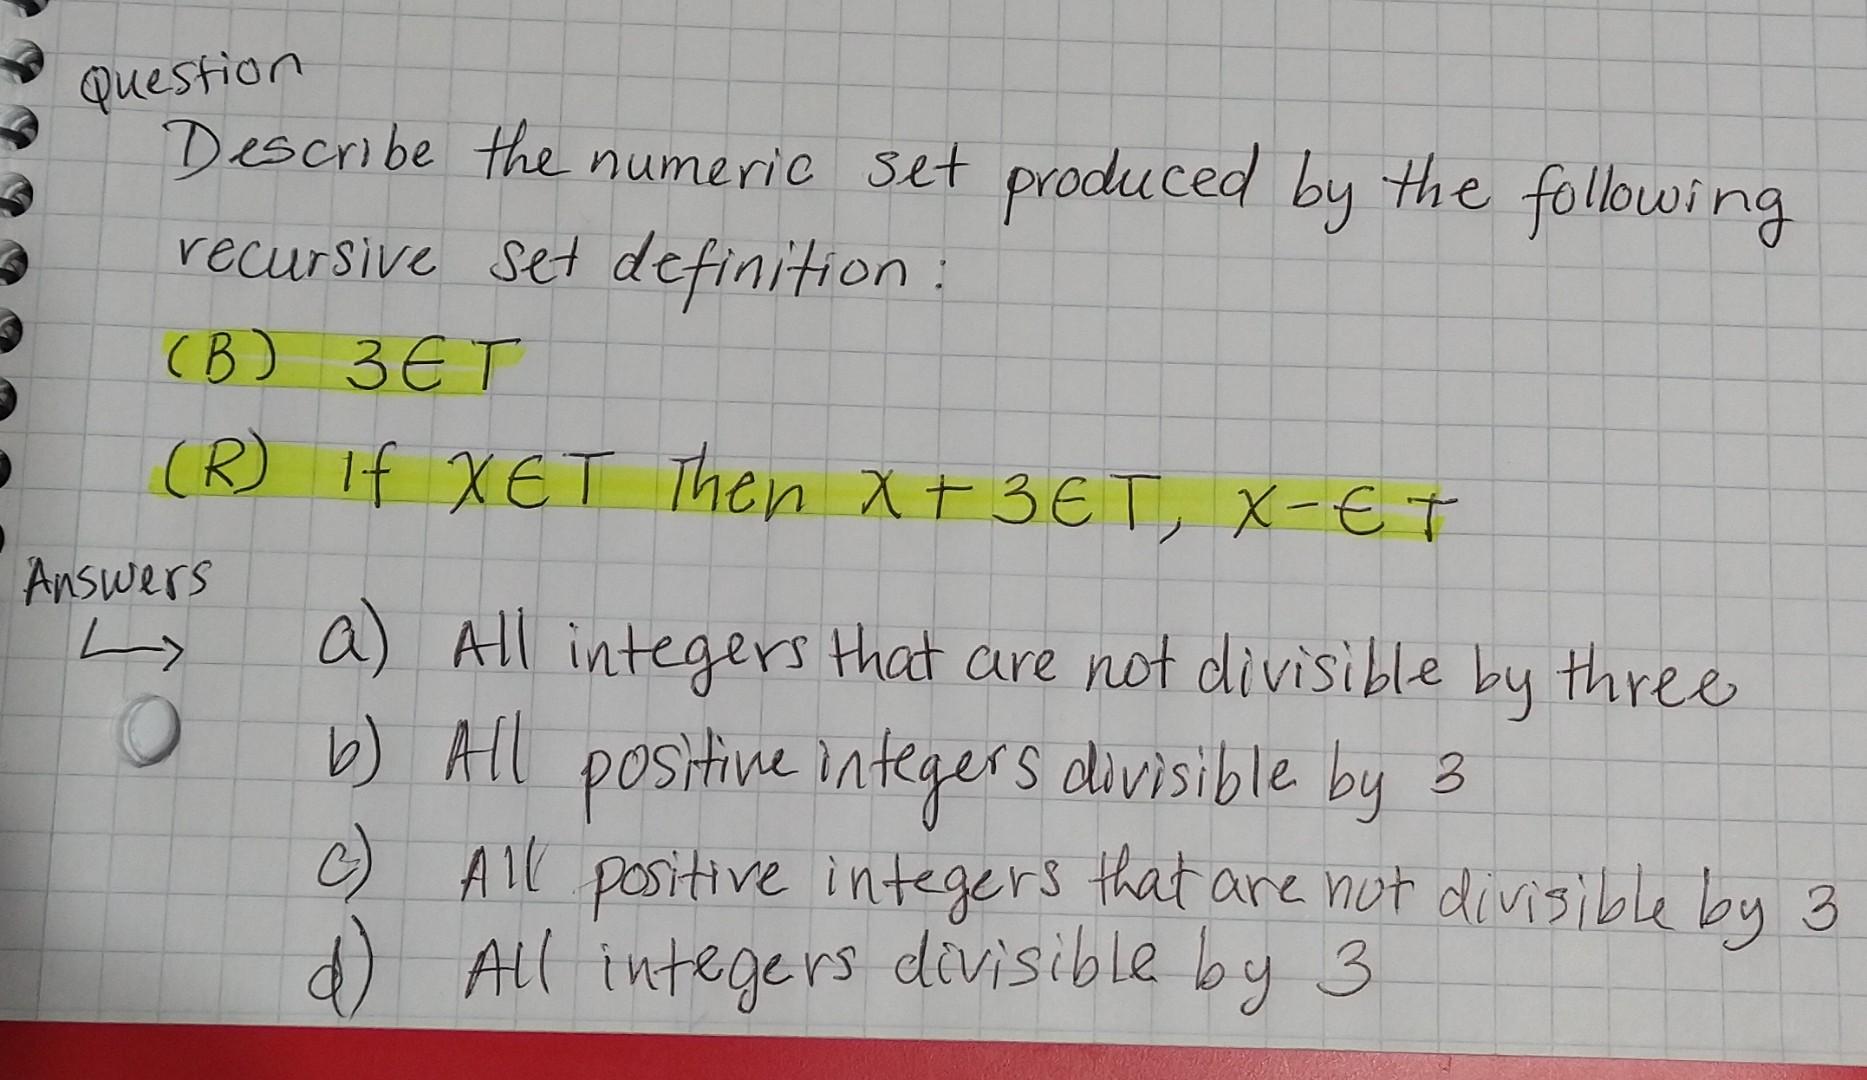 Question
Describe the numeric set produced by the following
recursive set definition:
(B) 3 ∈ T
(R) If x ∈ T Then x + 3 ∈ T, x - ∈ T
Answers
↳ a) All integers that are not divisible by three
b) All positive integers divisible by 3
c) All positive integers that are not divisible by 3
d) All integers divisible by 3